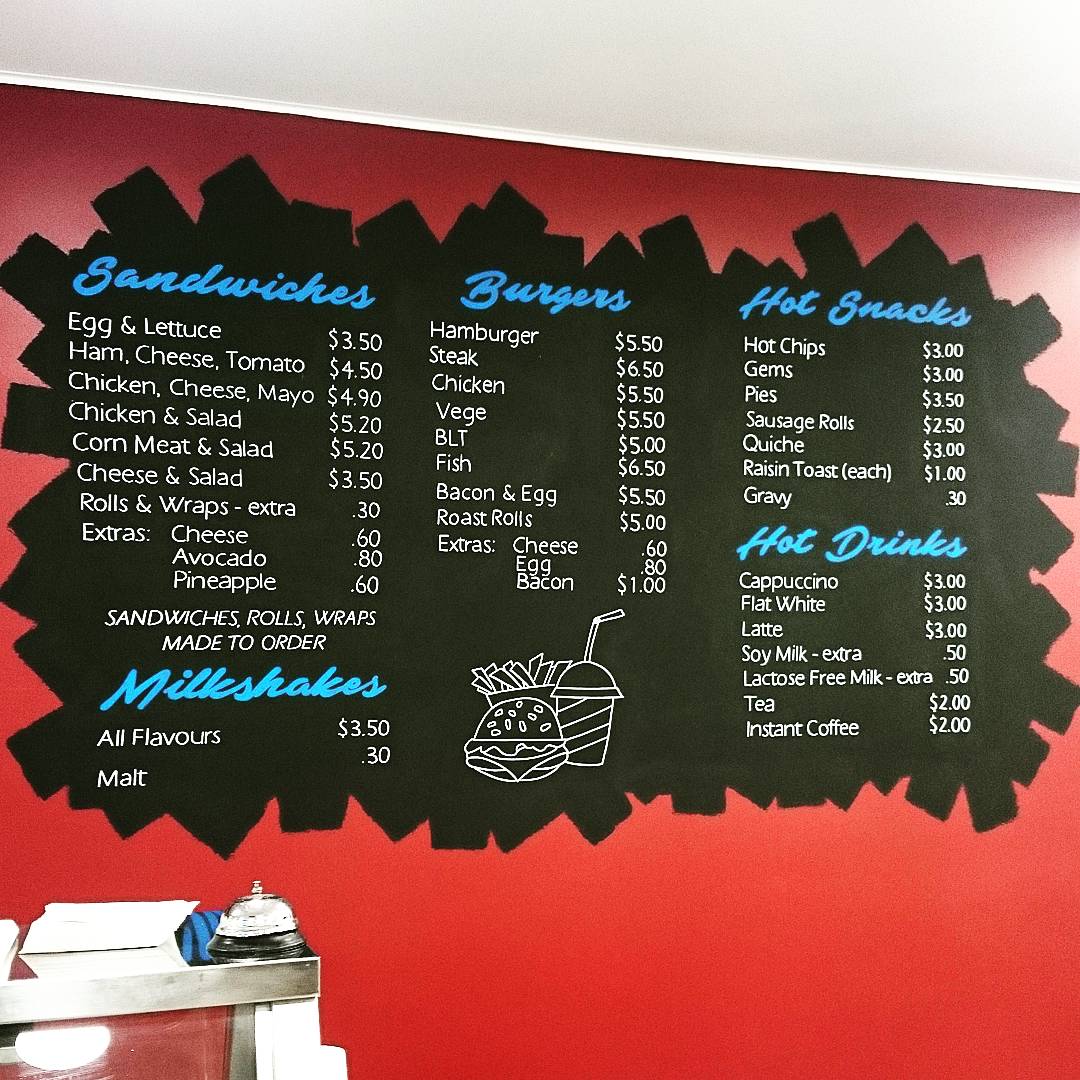 Sandwiches
Egg & Lettuce $3.50
Ham, Cheese, Tomato $4.50
Chicken, Cheese, Mayo $4.90
Chicken & Salad $5.20
Corn Meat & Salad $5.20
Cheese & Salad $3.50
Rolls & Wraps - extra .30
Extras: Cheese .60
Avocado .80
Pineapple .60
SANDWICHES, ROLLS, WRAPS
MADE TO ORDER
Milkshakes
All Flavours $3.50
Malt .30
Burgers
Hamburger $5.50
Steak $6.50
Chicken $5.50
Vege $5.50
BLT $5.00
Fish $6.50
Bacon & Egg $5.50
Roast Rolls $5.00
Extras: Cheese .60
Egg .80
Bacon $1.00
Hot Snacks
Hot Chips $3.00
Gems $3.00
Pies $3.50
Sausage Rolls $2.50
Quiche $3.00
Raisin Toast (each) $1.00
Gravy .30
Hot Drinks
Cappuccino $3.00
Flat White $3.00
Latte $3.00
Soy Milk - extra .50
Lactose Free Milk - extra .50
Tea $2.00
Instant Coffee $2.00